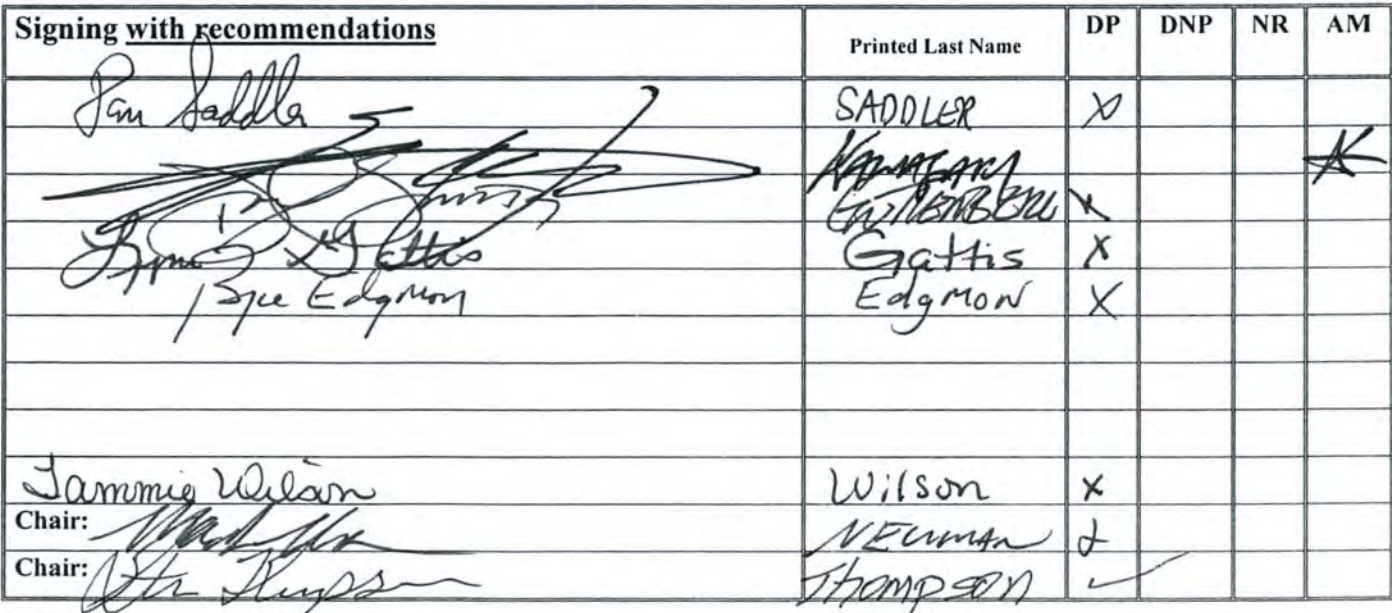 Signing with recommendations Printed Last Name DP DNP NR AM
Dan Saddler SADDLER X
KAWASAKI X
GUTTENBERG X
Lynn Gattis Gattis X
Bryce Edgmon Edgmon X
Tammie Wilson Wilson X
Chair: NEUMAN
Chair: Steve Thompson Thompson ✓